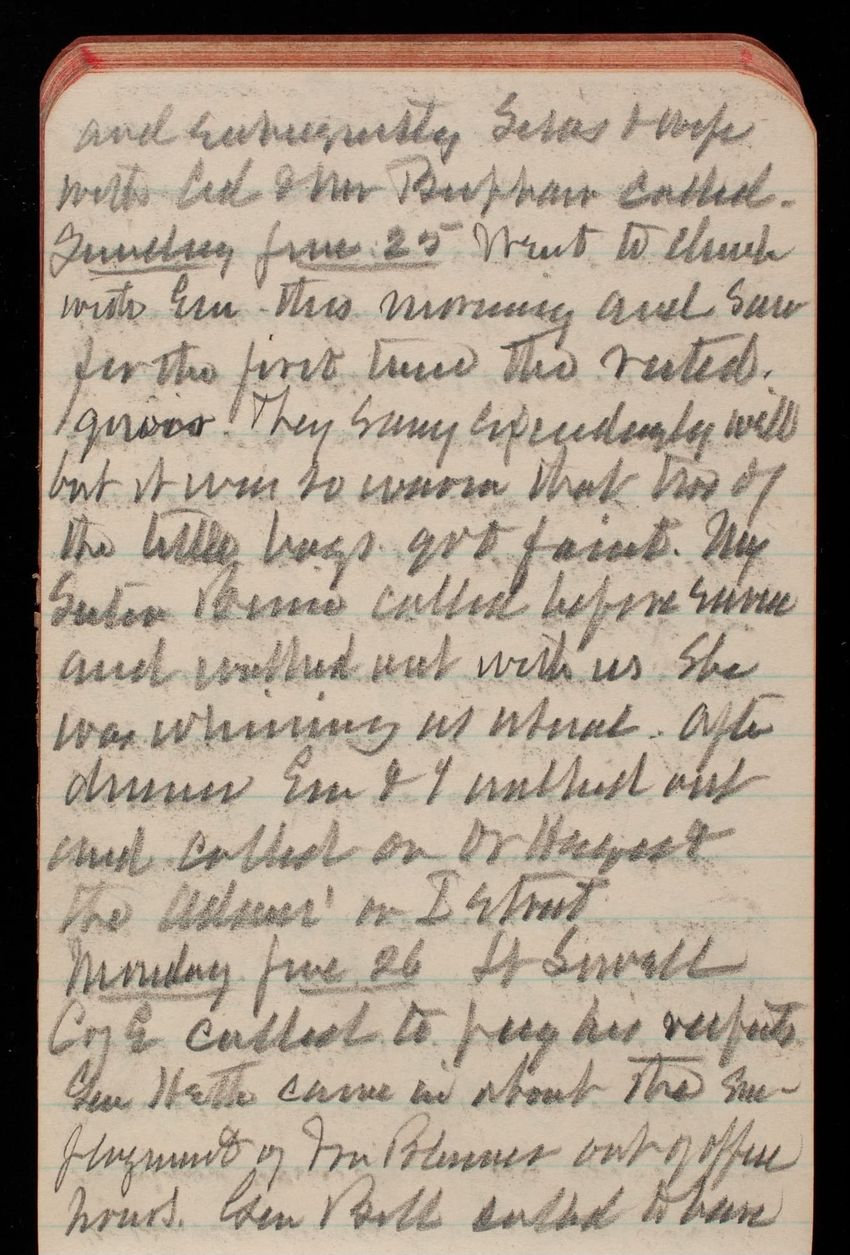 and subsequently Silas & wife
with Col & Mrs called.
Sunday June 25 Went to church
with Em this morning and saw
for the first time the vested
They sang exceedingly well
but it was so warm that two of
the little boys got faint. My
Sister called before service
and walked out with us She
was whining as usual. After
dinner Em & I walked out
and called on Dr &
the Adams' on I Street
Monday June 26 Lt
Co E called to pay his respects
Gen Heth came in about the em-
ployment of out of office
hours. Gen Bell called to have